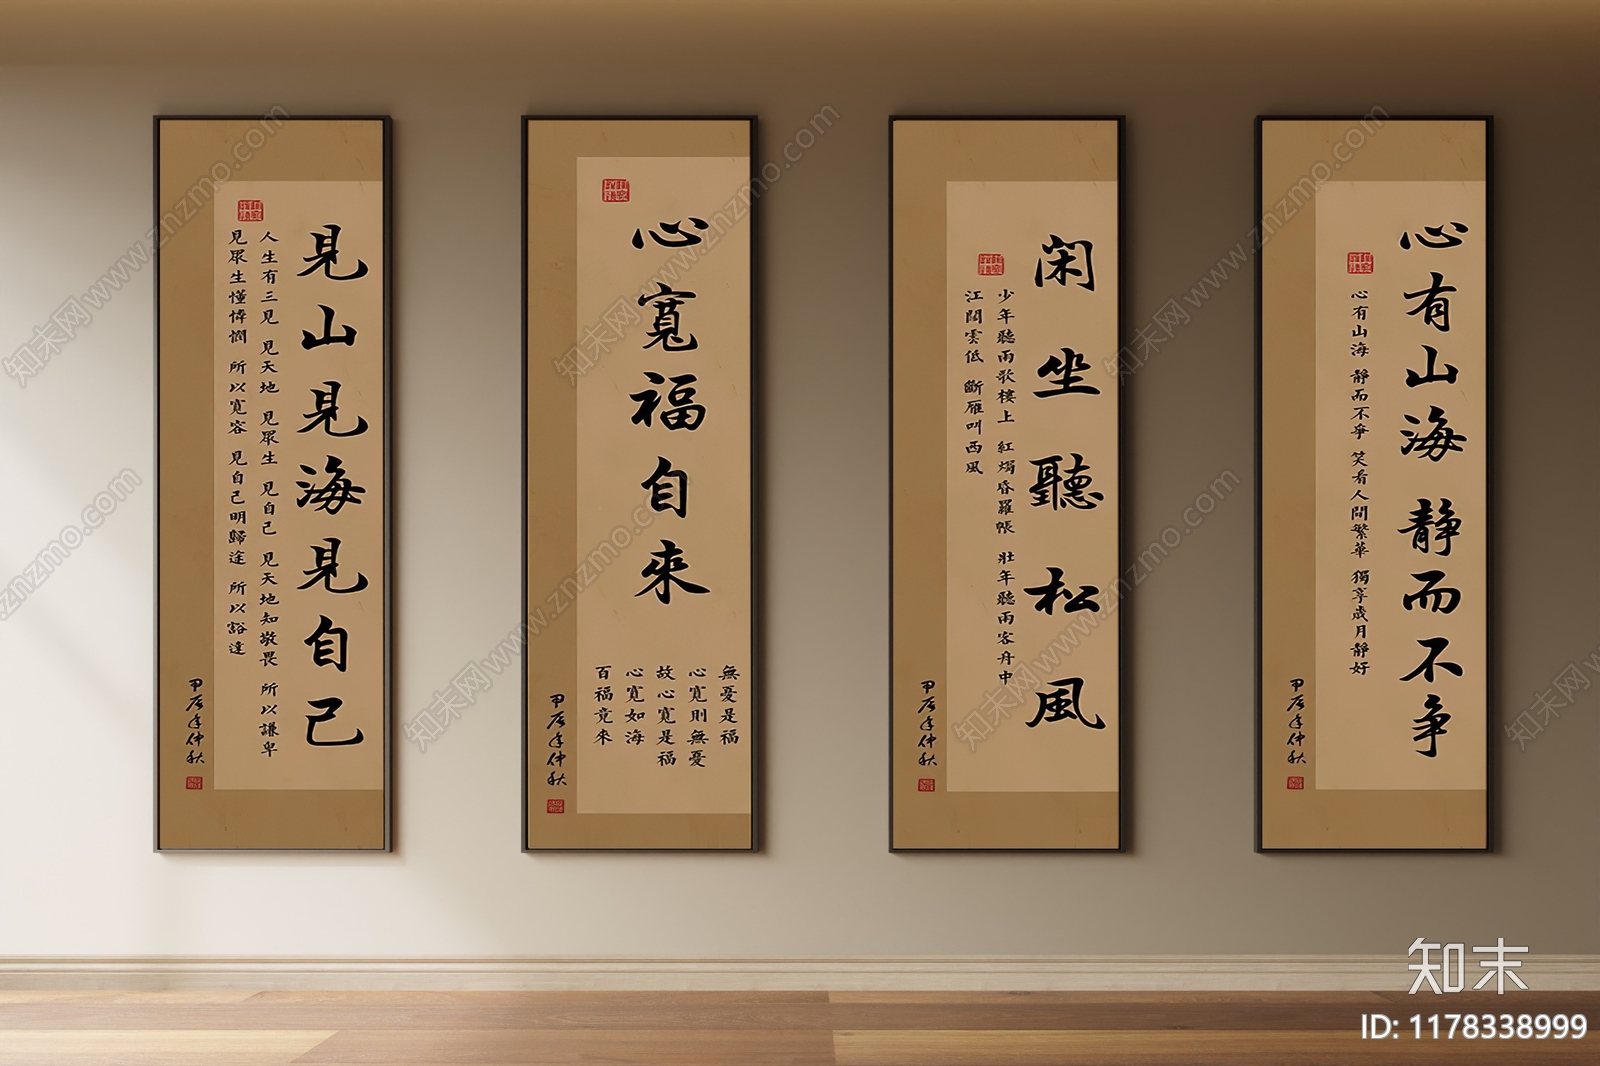 見山見海見自己
人生有三見 見天地 見眾生 見自己 見天地知敬畏 所以謙卑
見眾生懂憐憫 所以寬容 見自己明歸途 所以豁達
甲辰年仲秋
心寬福自來
無憂是福
心寬則無憂
故心寬是福
心寬如海
百福竟來
甲辰年仲秋
閑坐聽松風
少年聽雨歌樓上 紅燭昏羅帳 壯年聽雨客舟中
江闊雲低 斷雁叫西風
甲辰年仲秋
心有山海 靜而不争
心有山海 靜而不爭 笑看人間繁華 獨享歲月靜好
甲辰年仲秋
知末
ID: 1178338999
知末网www.znzmo.com